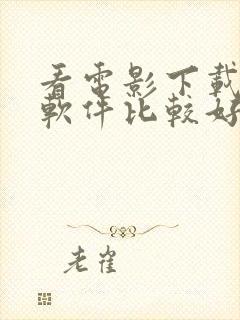 看電影下載
軟件比較好
老崔